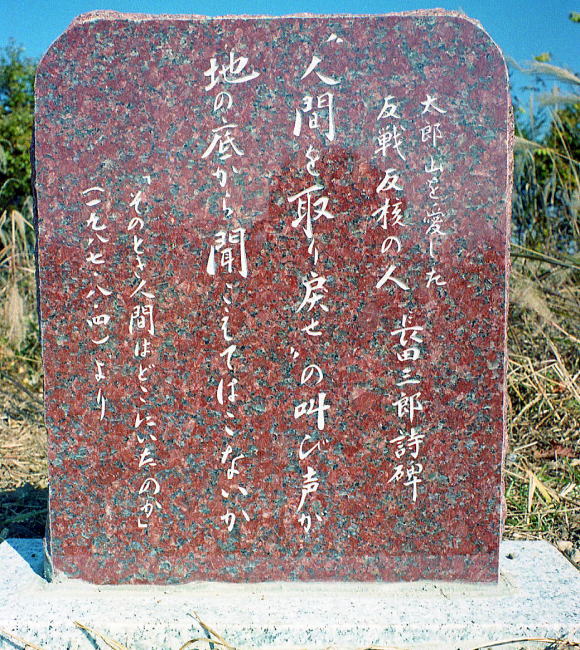 太郎山を愛した
反戦反核の人　長田三郎詩碑
“人間を取り戻せ”の叫び声が
地の底から聞こえてはこないか
「そのとき人間はどこにいたのか」
(一九八七・八・四)より